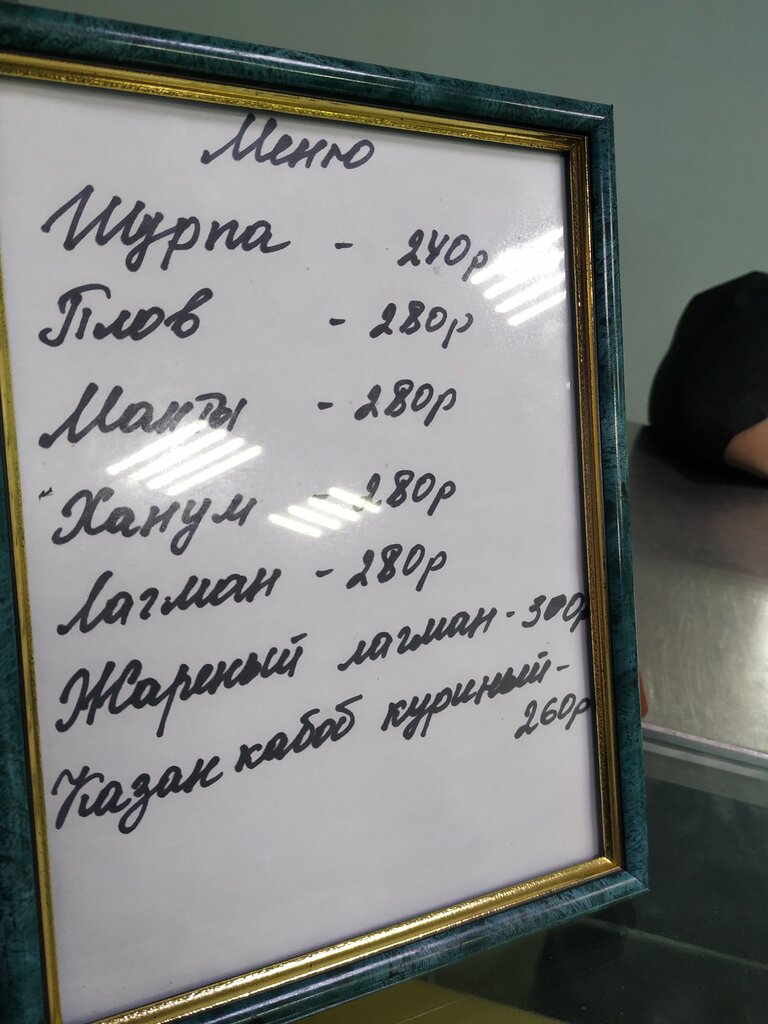 Меню
Шурпа - 240р
Плов - 280р
Манты - 280р
Ханум - 280р
Лагман - 280р
Жареный лагман - 300р
Казан кабоб куриный -
260р